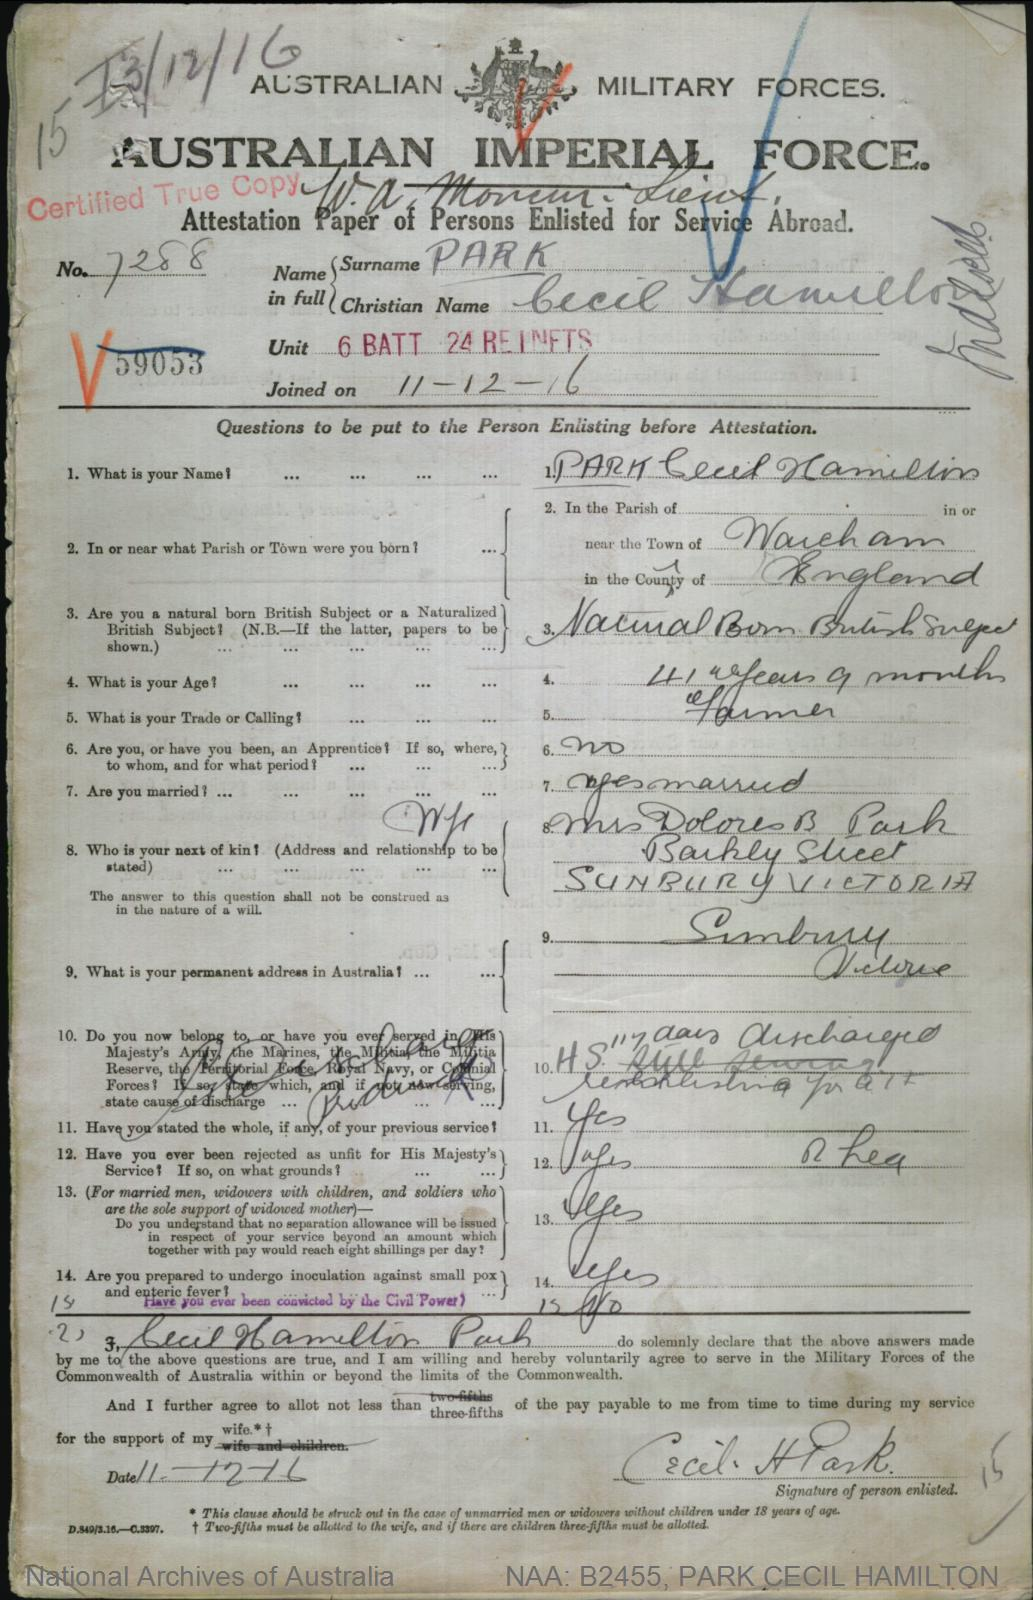 13/12/16
15
AUSTRALIAN MILITARY FORCES.
AUSTRALIAN IMPERIAL FORCE.
Certified True Copy
W.A. Lieut.
Attestation Paper of Persons Enlisted for Service Abroad.
No. 7288
Name in full
Surname PARK
Christian Name Cecil Hamilton
59053
Unit 6 BATT 24 REINFTS
Joined on 11-12-16
Questions to be put to the Person Enlisting before Attestation.
1. What is your Name? ... ... ... ... 1. PARK Cecil Hamilton
2. In or near what Parish or Town were you born? ... 2. In the Parish of in or
near the Town of Wareham
in the County of England
3. Are you a natural born British Subject or a Naturalized British Subject? (N.B.—If the latter, papers to be shown.) ... ... ... ... 3. Natural Born British Subject
4. What is your Age? ... ... ... ... 4. 41 years 9 months
5. What is your Trade or Calling? ... ... ... 5. Farmer
6. Are you, or have you been, an Apprentice? If so, where, to whom, and for what period? ... ... ... 6. no
7. Are you married? ... ... ... ... ... 7. yes married
Wife
8. Who is your next of kin? (Address and relationship to be stated) ... ... ... ... ... 8. Mrs Dolores B Park
Barkly Street
SUNBURY VICTORIA
The answer to this question shall not be construed as
in the nature of a will.
9. What is your permanent address in Australia? ... ... 9. Sunbury
Victoria
10. Do you now belong to, or have you ever served in, His
Majesty's Army, the Marines, the Militia, the Militia
Reserve, the Territorial Force, Royal Navy, or Colonial
Forces? If so, state which, and if not now serving,
state cause of discharge ... ... ... ...
Discharge
Produced
10. H S. 117 days discharged
Still Serving
11. Have you stated the whole, if any, of your previous service? 11. Yes
12. Have you ever been rejected as unfit for His Majesty's Service? If so, on what grounds? ... ... 12. yes
13. (For married men, widowers with children, and soldiers who
are the sole support of widowed mother)—
Do you understand that no separation allowance will be issued
in respect of your service beyond an amount which
together with pay would reach eight shillings per day? 13. Yes
14. Are you prepared to undergo inoculation against small pox and enteric fever? ... ... ... ... 14. Yes
15 Have you ever been convicted by the Civil Power? 15 No
I, Cecil Hamilton Park do solemnly declare that the above answers made
by me to the above questions are true, and I am willing and hereby voluntarily agree to serve in the Military Forces of the
Commonwealth of Australia within or beyond the limits of the Commonwealth.
And I further agree to allot not less than two-fifths three-fifths of the pay payable to me from time to time during my service
for the support of my wife.*† wife and children.
Date 11-12-16
Cecil. H Park.
Signature of person enlisted.
15
* This clause should be struck out in the case of unmarried men or widowers without children under 18 years of age.
D.849/3.16.—C.3397.
† Two-fifths must be allotted to the wife, and if there are children three-fifths must be allotted.
National Archives of Australia
NAA: B2455, PARK CECIL HAMILTON